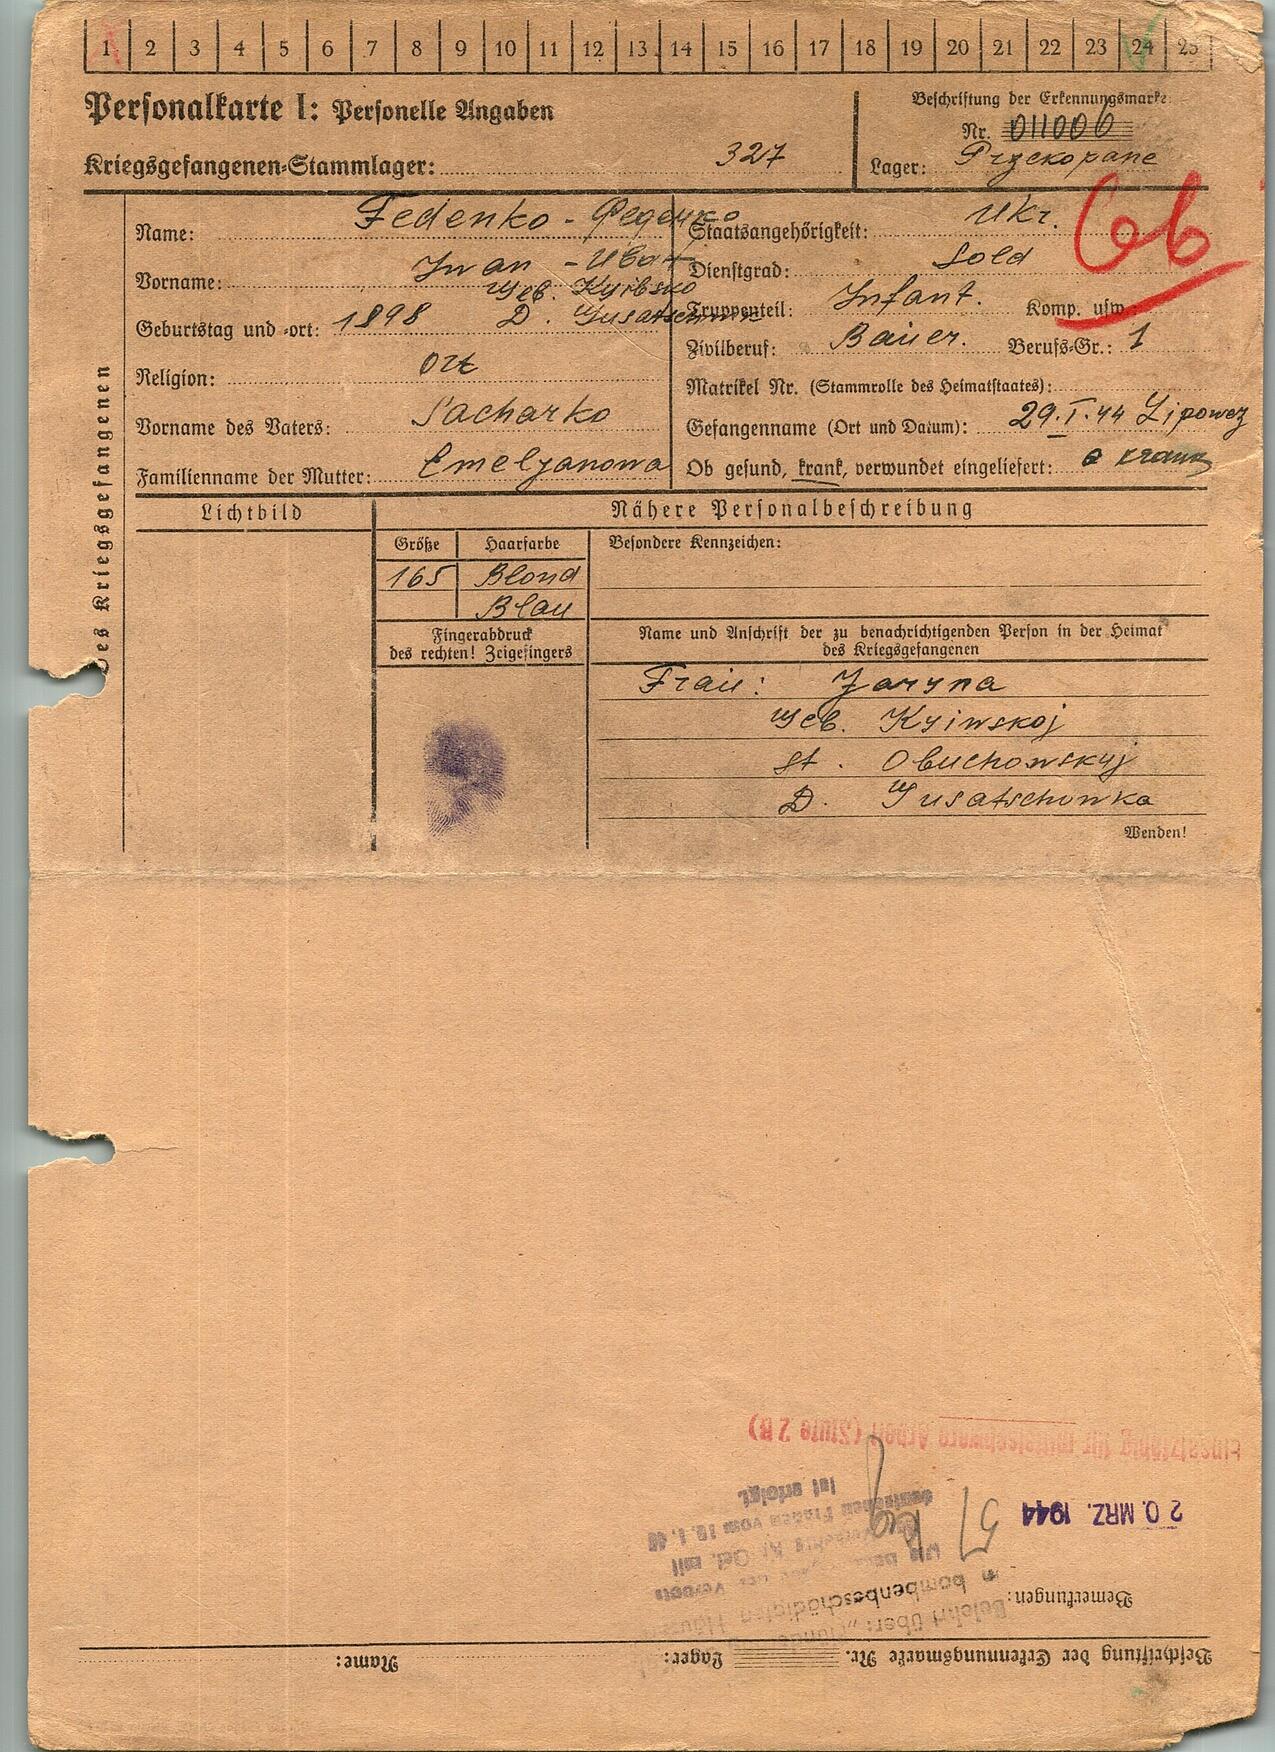 1 2 3 4 5 6 7 8 9 10 11 12 13 14 15 16 17 18 19 20 21 22 23 24 25
Personalkarte I: Personelle Angaben
Kriegsgefangenen-Stammlager: 327
Beschriftung der Erkennungsmarke
Nr. 011006
Lager: Przekopane
6b
des Kriegsgefangenen
Name: Fedenko - Феденко
Vorname: Iwan - Иван
Geburtstag und -ort: 1898
Geb.
D.
Religion: Ort
Vorname des Vaters: Sacharko
Familienname der Mutter: Emeljanowa
Staatsangehörigkeit: Ukr.
Dienstgrad: Sold
Truppenteil: Infant. Komp. usw.:
Zivilberuf: Bauer. Berufs-Gr.: 1
Matrikel Nr. (Stammrolle des Heimatstaates):
Gefangenname (Ort und Datum): 29.I.44 Lipowez
Ob gesund, krank, verwundet eingeliefert: krank
Lichtbild
Nähere Personalbeschreibung
Größe Haarfarbe Besondere Kennzeichen:
165 Blond
Blau
Fingerabdruck
des rechten! Zeigefingers
Name und Anschrift der zu benachrichtigenden Person in der Heimat
des Kriegsgefangenen
Frau: Jaryna
Geb. Kyiwskoj
st. Obuchowskyj
D. Gusatschowka
Wenden!
Beschriftung der Erkennungsmarke Nr. Lager: Name:
Bemerkungen:
Belehrt über:
bombenbeschädigten
deutschen Frauen vom
ist erfolgt.
57
20. MRZ. 1944
Einsatzfähig für mittelschwere Arbeit (Stufe 2 B)